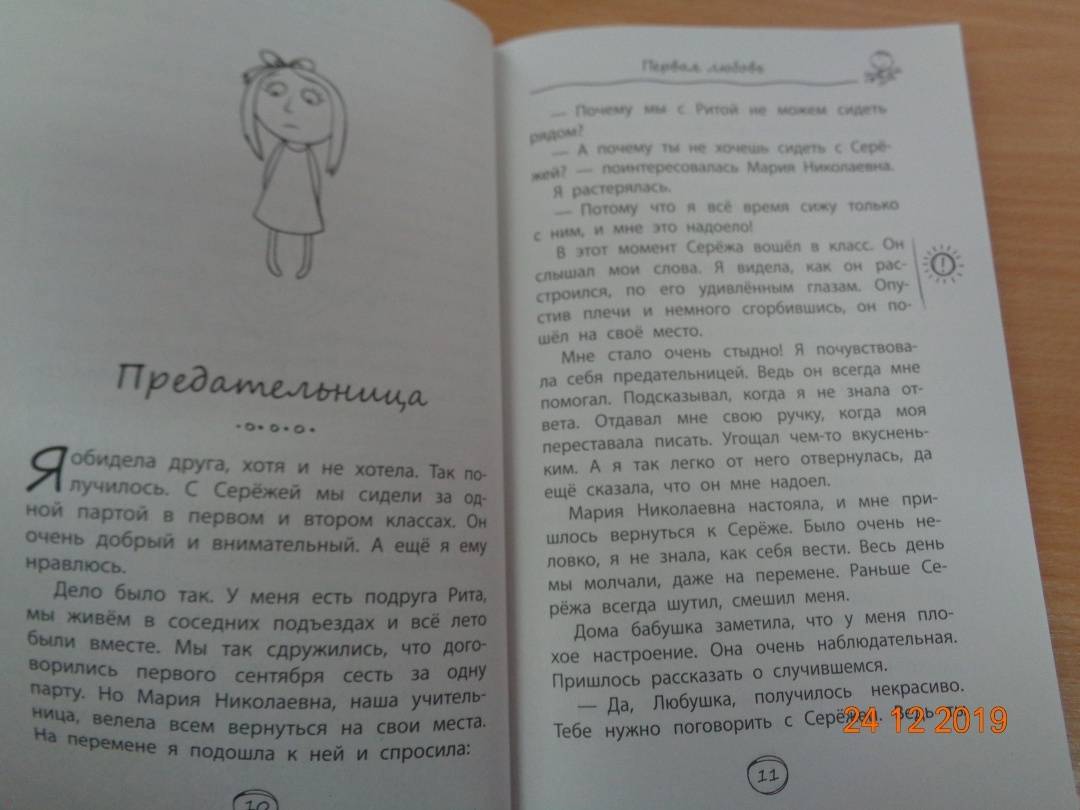 Предательница
Я обидела друга, хотя и не хотела. Так по-
лучилось. С Серёжей мы сидели за од-
ной партой в первом и втором классах. Он
очень добрый и внимательный. А ещё я ему
нравлюсь.
Дело было так. У меня есть подруга Рита,
мы живём в соседних подъездах и всё лето
были вместе. Мы так сдружились, что дого-
ворились первого сентября сесть за одну
парту. Но Мария Николаевна, наша учитель-
ница, велела всем вернуться на свои места.
На перемене я подошла к ней и спросила:
10
Первая любовь
— Почему мы с Ритой не можем сидеть
рядом?
— А почему ты не хочешь сидеть с Серё-
жей? — поинтересовалась Мария Николаевна.
Я растерялась.
— Потому что я всё время сижу только
с ним, и мне это надоело!
В этот момент Серёжа вошёл в класс. Он
слышал мои слова. Я видела, как он рас-
строился, по его удивлённым глазам. Опу-
стив плечи и немного сгорбившись, он по-
шёл на своё место.
!
Мне стало очень стыдно! Я почувствова-
ла себя предательницей. Ведь он всегда мне
помогал. Подсказывал, когда я не знала от-
вета. Отдавал мне свою ручку, когда моя
переставала писать. Угощал чем-то вкуснень-
ким. А я так легко от него отвернулась, да
ещё сказала, что он мне надоел.
Мария Николаевна настояла, и мне при-
шлось вернуться к Серёже. Было очень не-
ловко, я не знала, как себя вести. Весь день
мы молчали, даже на перемене. Раньше Се-
рёжа всегда шутил, смешил меня.
Дома бабушка заметила, что у меня пло-
хое настроение. Она очень наблюдательная.
Пришлось рассказать о случившемся.
— Да, Любушка, получилось некрасиво.
Тебе нужно поговорить с Серёжей. Ведь ты
24 12 2019
11